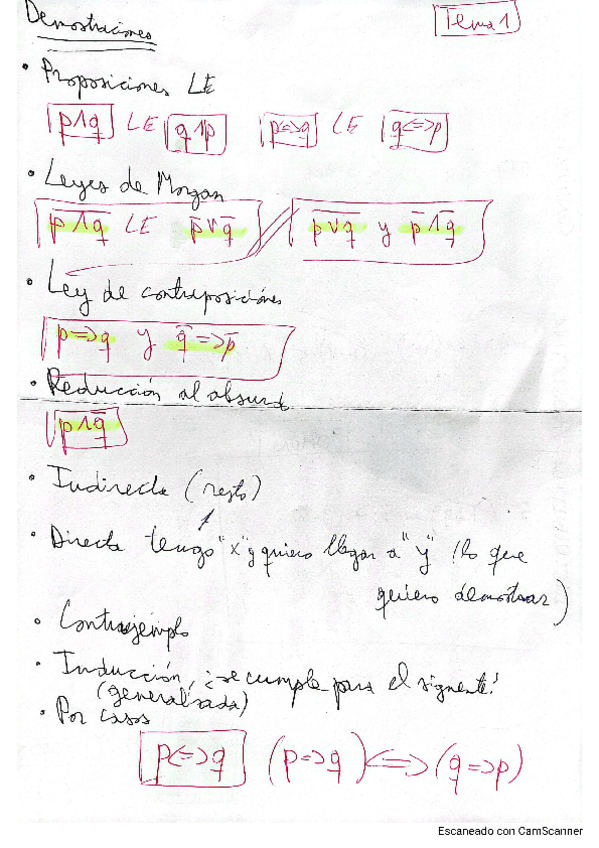 Demostraciones
Tema 1
• Proposiciones LE
p∧q LE q∧p p<=>q LE q<=>p
• Leyes de Morgan
p̅∧̅q̅ LE p̅∨q̅ // p̅∨̅q̅ y p̅∧q̅
• Ley de contraposiciónes
p=>q y q̅=>p̅
• Reducción al absurdo
p∧q̅
• Indirecta (resto)
• Directa tengo "x" y quiero llegar a "y" (lo que
quiero demostrar)
• Contraejemplo
• Inducción, ¿se cumple para el siguiente?
(generalisada)
• Por casos
p<=>q (p=>q)<=>(q=>p)
Escaneado con CamScanner